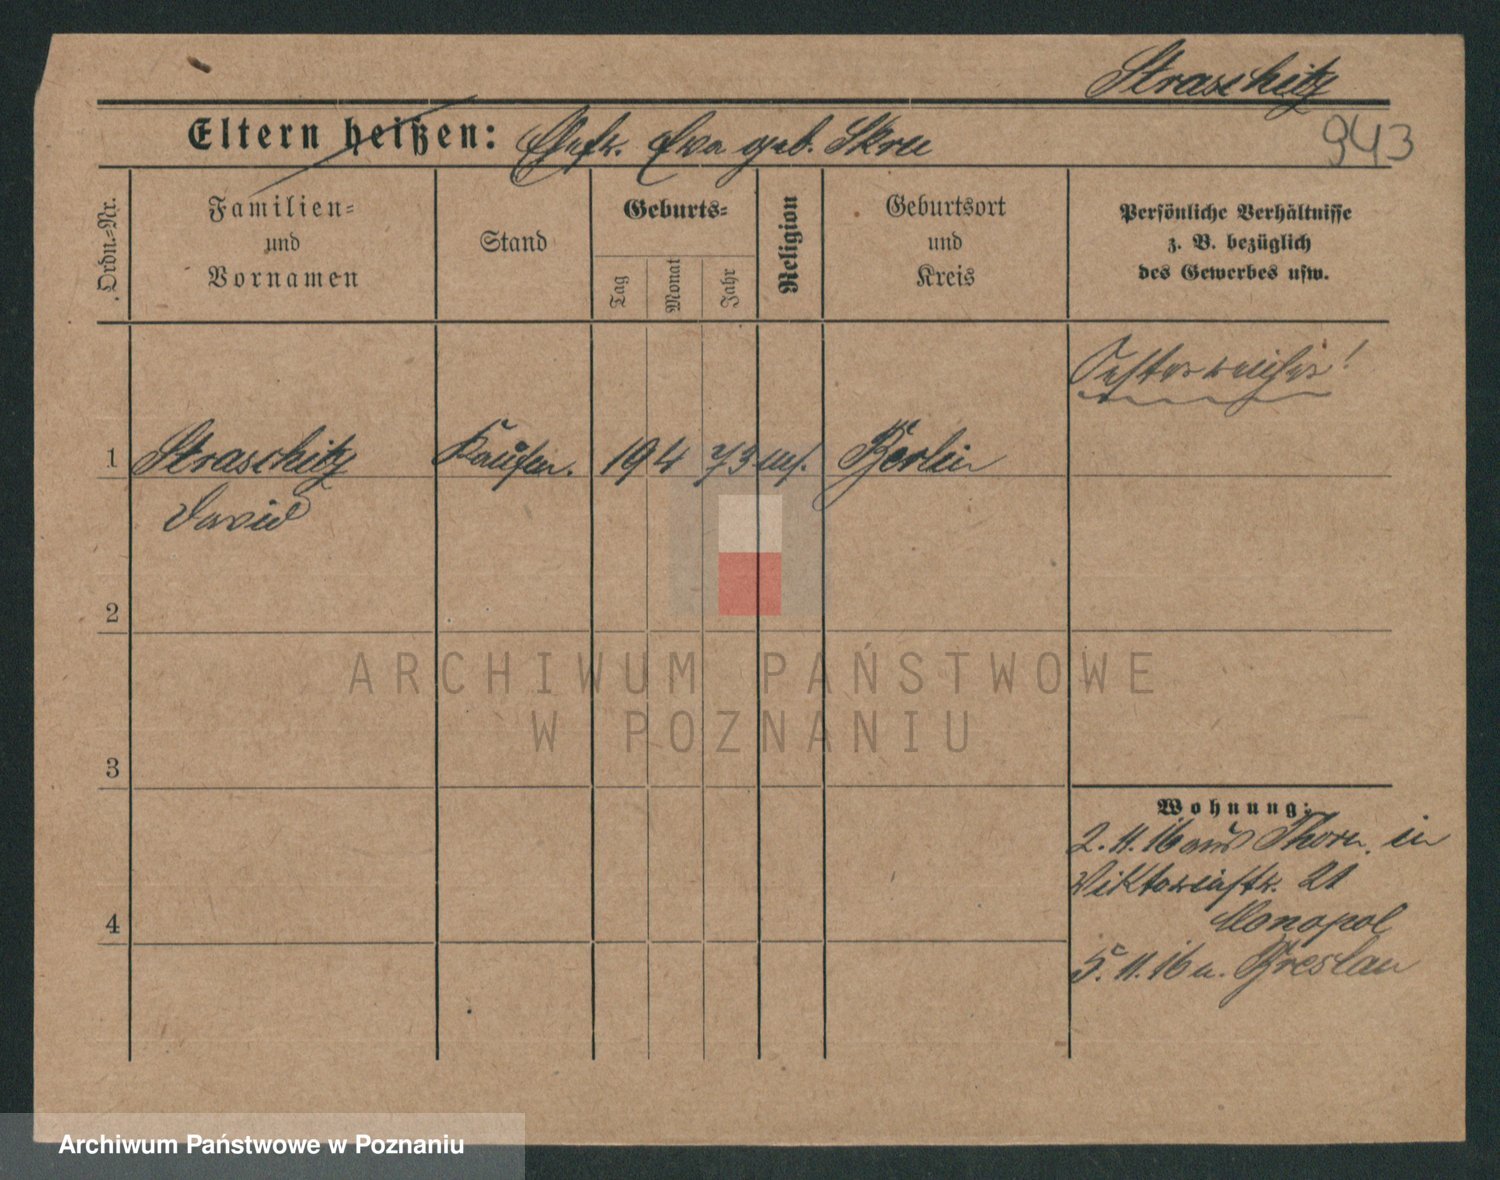 Straschitz
Eltern heißen: Ehefr. Eva geb. Skru
943
Ordn.-Nr.
Familien-
und
Vornamen
Stand
Geburts-
Tag
Monat
Jahr
Religion
Geburtsort
und
Kreis
Persönliche Verhältnisse
z. B. bezüglich
des Gewerbes usw.
Oesterreicher!
1 Straschitz Kaufm. 19 4 73 Berlin
David
2
3
4
Wohnung:
2. 11. 16 aus Thorn, in
Viktoriastr. 21
Monopol
5. 11. 16 n. Breslau
ARCHIWUM PAŃSTWOWE
W POZNANIU
Archiwum Państwowe w Poznaniu